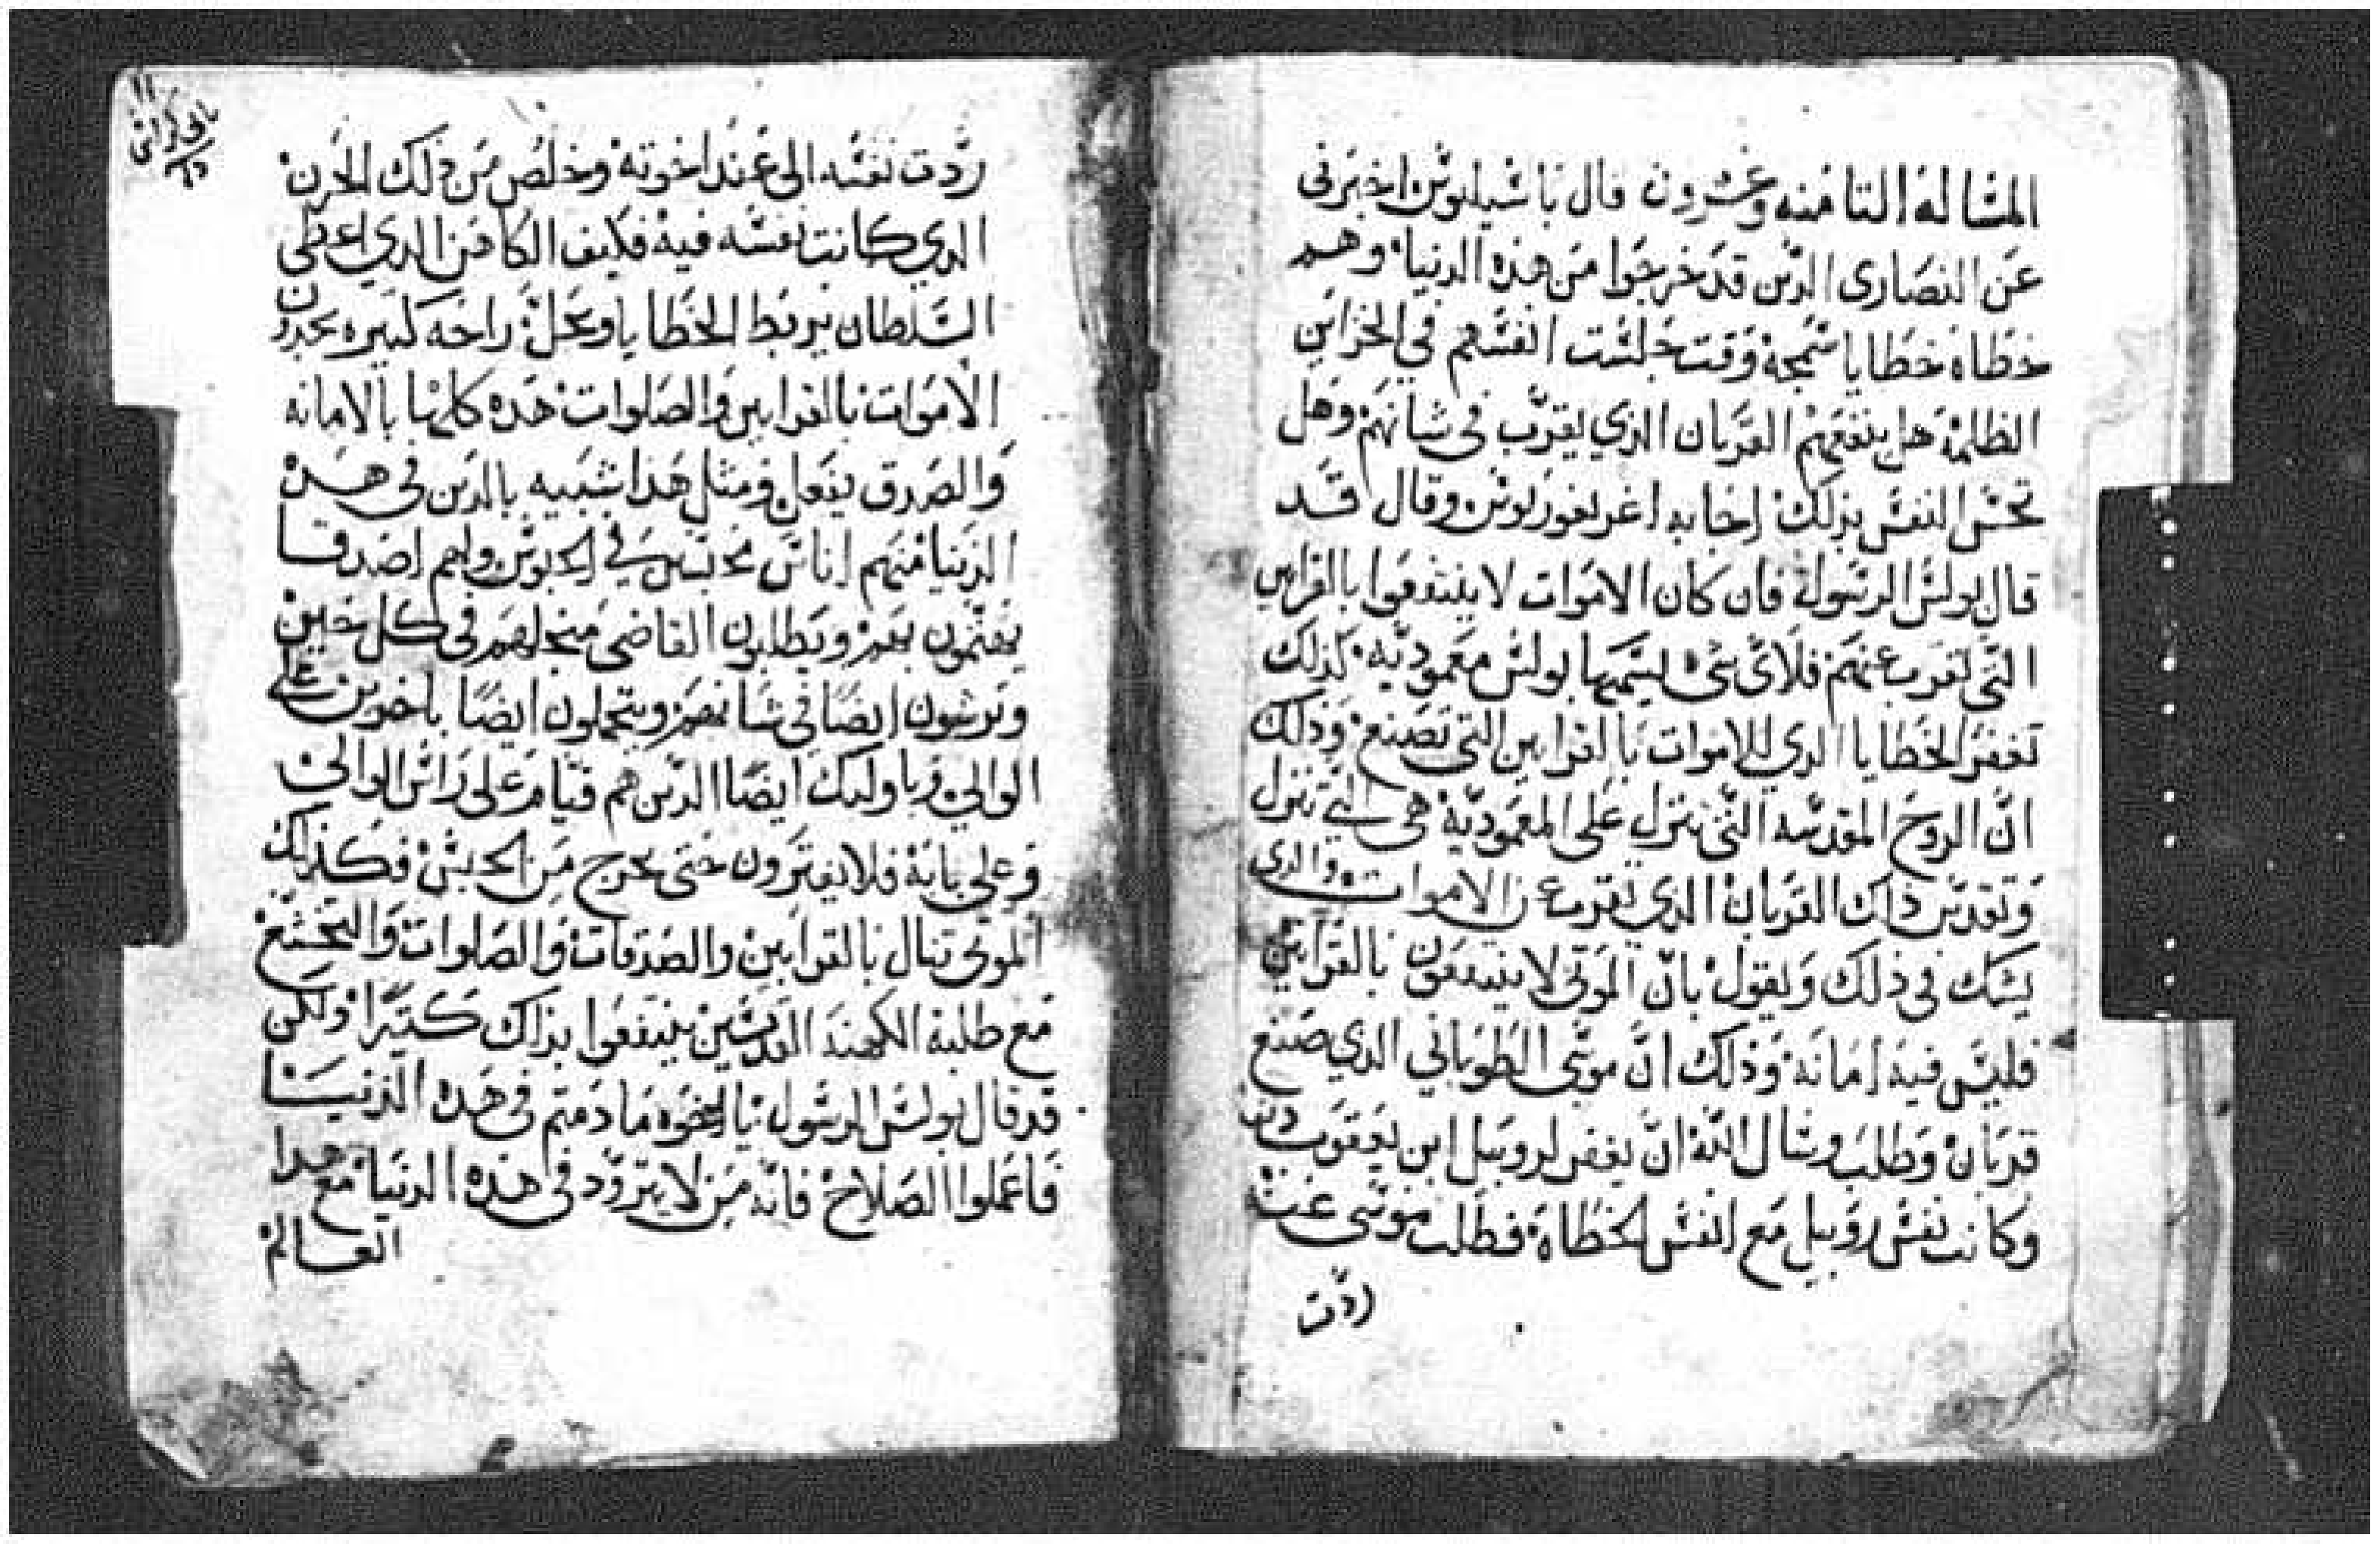 المساله التامنه وعشرون قال باسيليوس اخبرني
عن النصارى الذين قد خرجوا من هذه الدنيا وهم
خطاه خطايا سمجه وقت جلست انفسهم في الخزاين
الظلمة هل ينفعهم القربان الذي يقرب في شانهم وهل
تحس النفس بذلك اجابه اغريغوريوس وقال قد
قال بولس الرسول فان كان الاموات لا ينتفعوا بالقرابين
التي تقرب عنهم فلاى شى يسميها بولس معموديه كذلك
تغفر الخطايا الذي للاموات بالقرابين التي تصنع وذلك
ان الروح المقدسه التي تنزل على المعمودية هي التي تنزل
وتقدس ذاك القربان الذي يقرب عن الاموات والذي
يشك في ذلك ويقول بان الموتى لا ينتفعون بالقرابين
فليس فيه امانه وذلك ان موسى الطوباني الذي صنع
قربان وطلب وسال الله ان يغفر لروبيل ابن يعقوب
وكانت نفس روبيل مع انفس الخطاه فطلب موسى عنه
ردت
ردت نفسه الى عند اخوته وخلص من ذلك الحزن
الذي كانت نفسه فيه فكيف الكاهن الذي اعطى
السلطان يربط الخطايا ويحل راحه كبيره يجدون
الاموات بالقرابين والصلوات هذه كلها بالامانه
والصدق يفعل ومثل هذا شبيه بالذين في هذه
الدنيا منهم اناس تحبس في الحبوس ولهم اصدقا
يهتمون بهم ويطلبون القاضي منجلهم في كل حين
ويرشون ايضا في شانهم ويتحملون ايضا باخرين على
الوالي وباوليك ايضا الذين هم قيام على راس الوالي
وعلى بابه فلا يفترون حتى يخرج من الحبس فكذلك
الموتى تنال بالقرابين والصدقات والصلوات والتخشع
مع طلبة الكهنه القديسين ينتفعوا بذاك كتيرا ولكن
قد قال بولس الرسول يا اخوه ما دمتم في هذه الدنيا
فاعملوا الصلاح فانه من لا يتزود في هذه الدنيا مع هدا
العالم